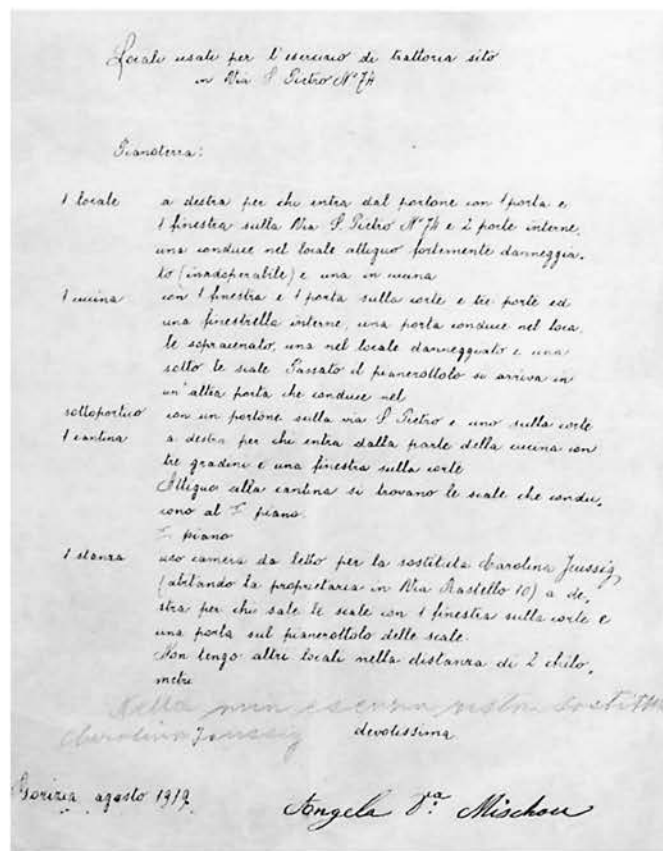 Locali usati per l'esercizio di trattoria sito
in Via S. Pietro N° 74
Pianoterra:
1 locale a destra per chi entra dal portone con 1 porta e
1 finestra sulla Via S. Pietro N° 74 e 2 porte interne,
una conduce nel locale attiguo fortemente danneggia-
to (inadoperabile) e una in cucina
1 cucina con 1 finestra e 1 porta sulla corte e tre porte ed
una finestrella interne, una porta conduce nel loca-
le sopracenato, una nel locale danneggiato e una
sotto le scale Passato il pianerottolo si arriva in
un'altra porta che conduce nel
sottoportico con un portone sulla via S. Pietro e uno sulla corte
1 cantina a destra per chi entra dalla parte della cucina con
tre gradini e una finestra sulla corte
Attiguo alla cantina si trovano le scale che condu-
cono al I° piano.
I° piano
1 stanza uso camera da letto per la sostituta Carolina Jeussig,
(abitando la proprietaria in Via Rastello 10) a de-
stra per chi sale le scale con 1 finestra sulla corte e
una porta sul pianerottolo delle scale.
Non tengo altri locali nella distanza di 2 chilo-
metri
Nella mia
Carolina Jeussig devotissima
Gorizia, agosto 1919.
Angela Va. Mischou